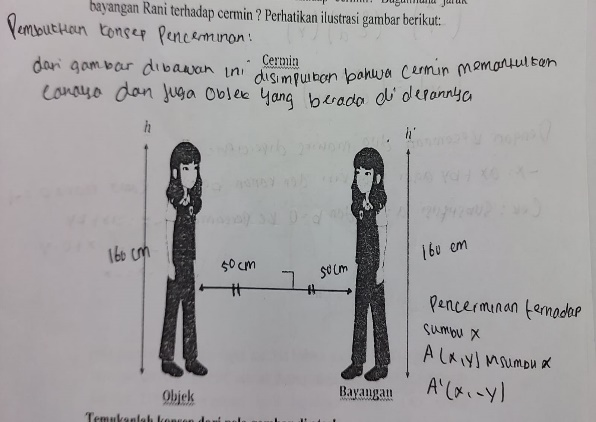 bayangan Rani terhadap cermin ? Perhatikan ilustrasi gambar berikut:
Pembuktian konsep Pencerminan:
Cermin
dari gambar dibawah ini disimpulkan bahwa cermin memantulkan
cahaya dan juga objek yang berada di depannya
h
h'
160 cm
50 cm
50 cm
160 cm
Pencerminan terhadap
sumbu x
A (x,y) M sumbu x
A' (x, -y)
Objek
Bayangan